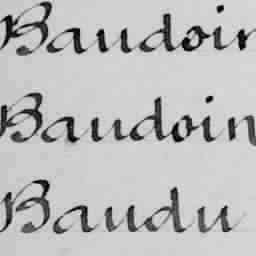 Baudoin
Baudoin
Baudu